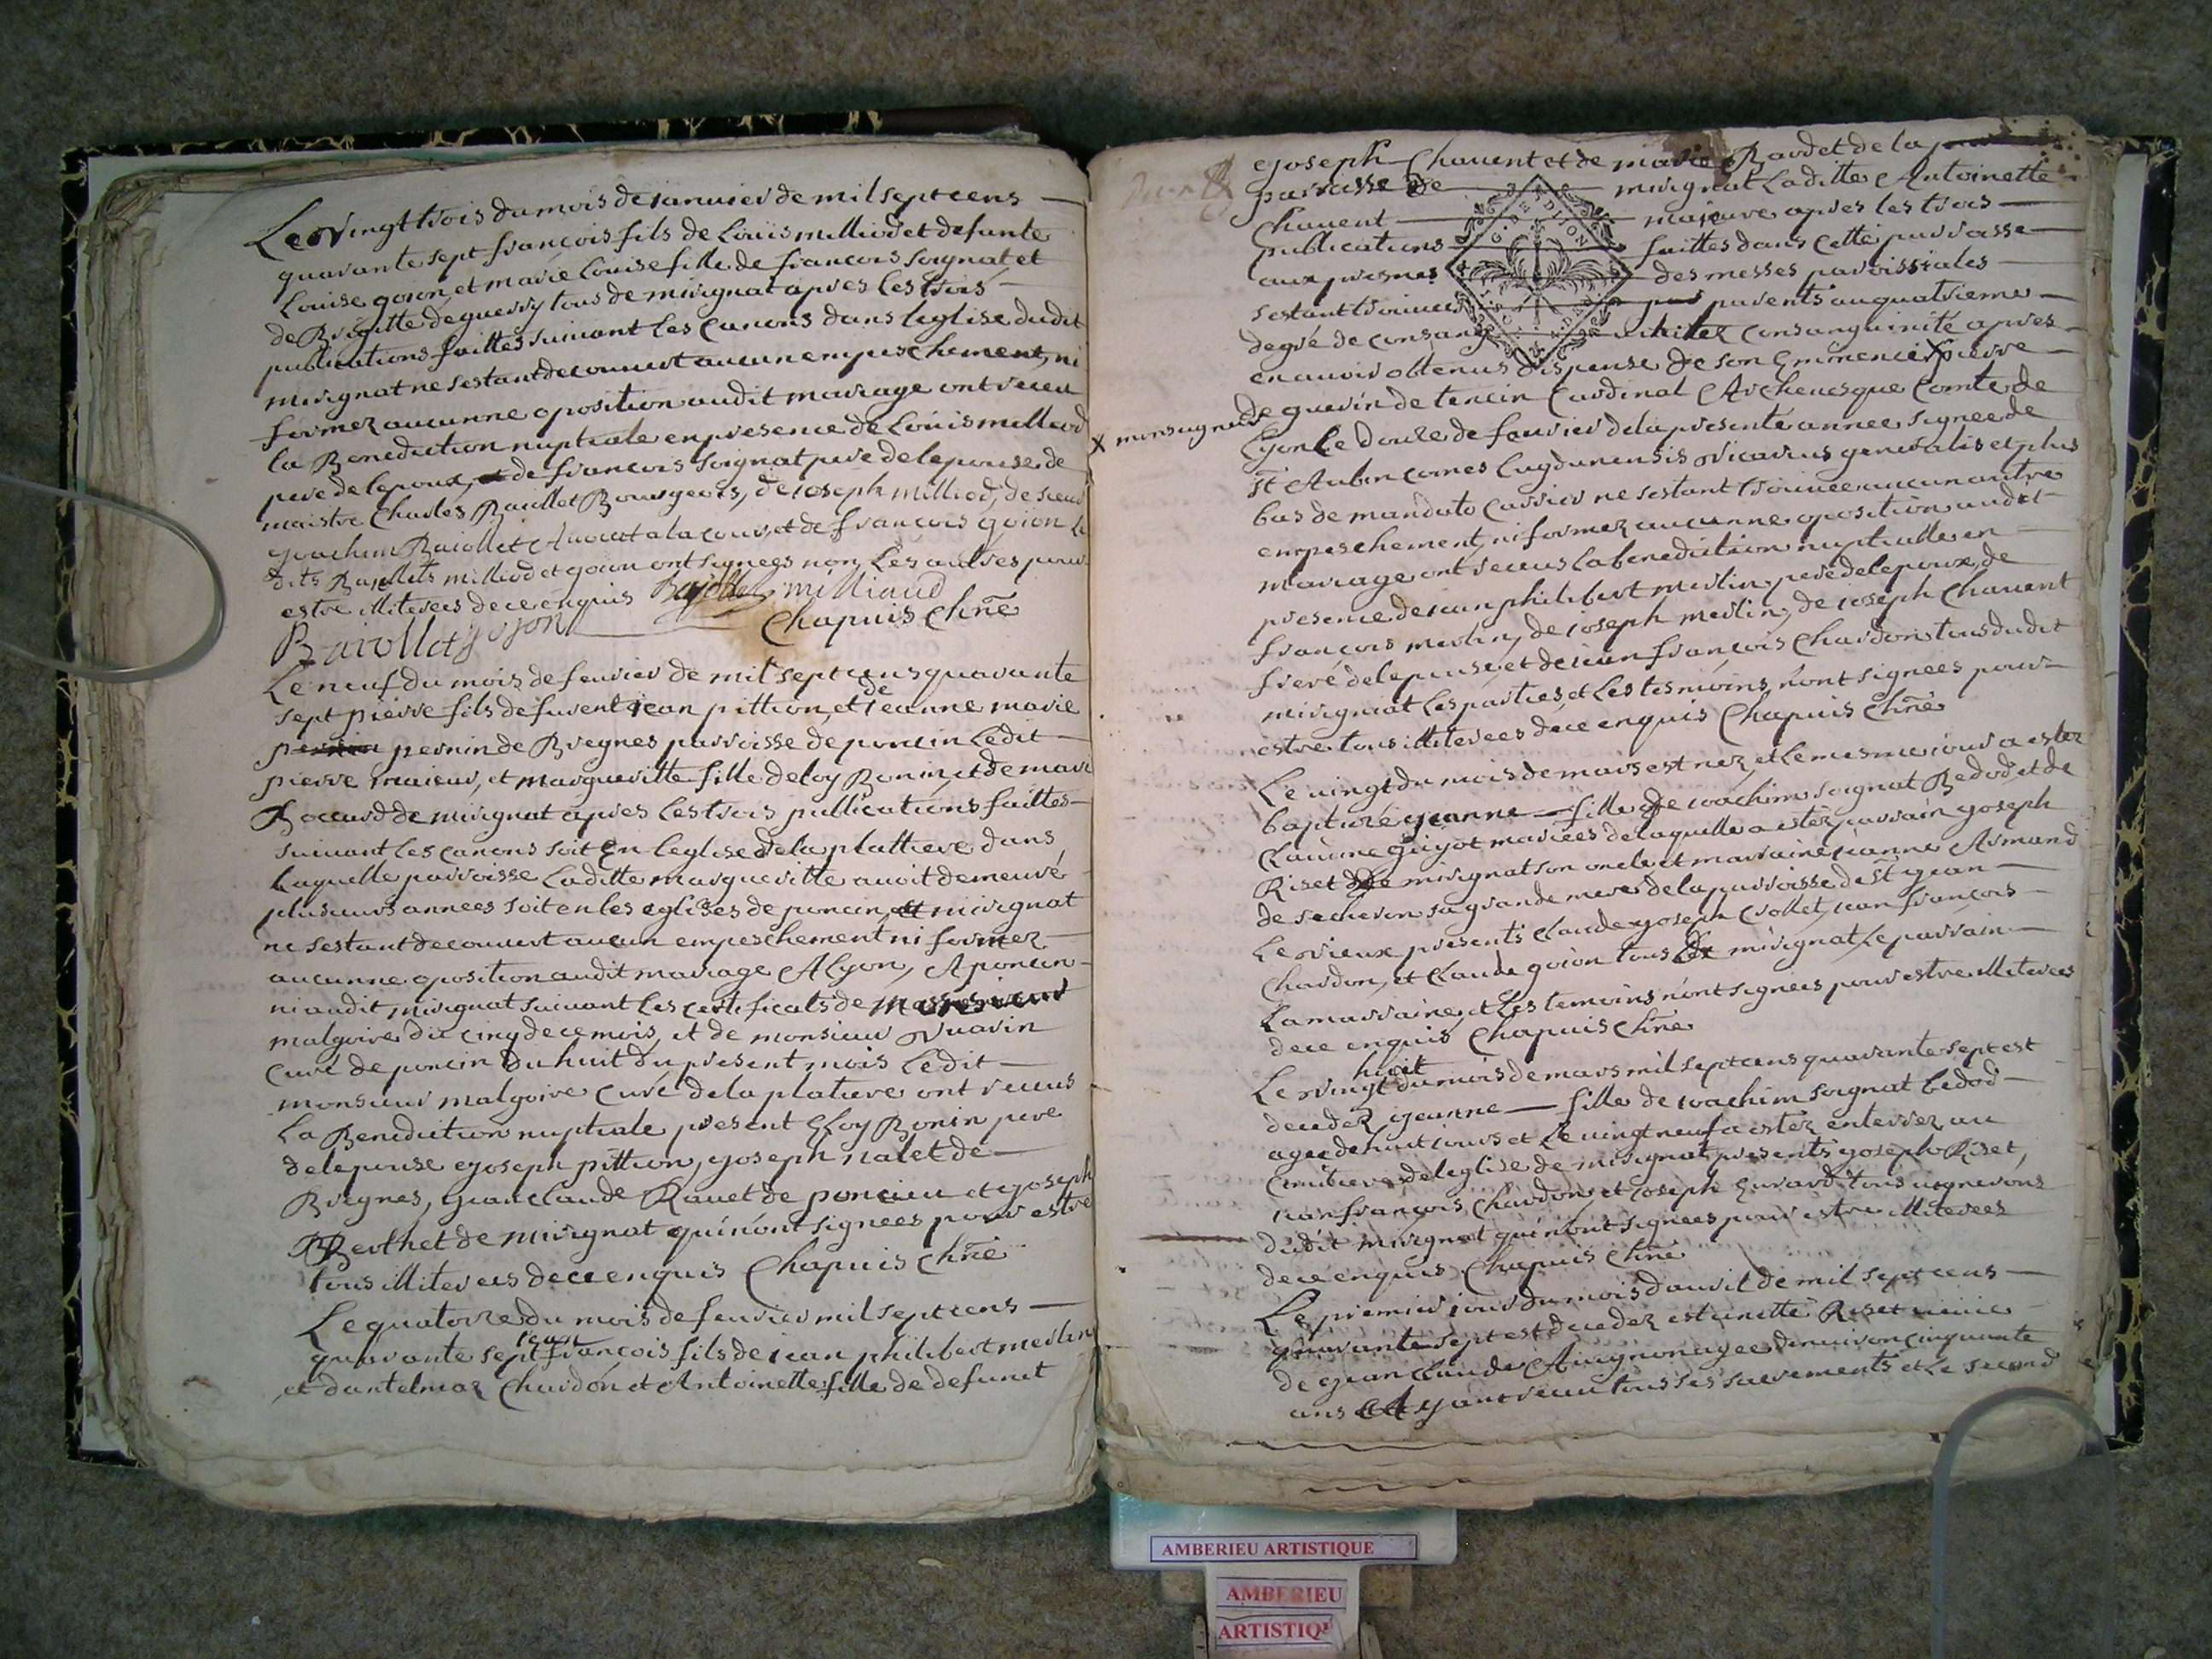 Le vingt trois du mois de ianuier de mil sept cens
quarante sept françois fils de Louis milliod et defunte
Louise goion, et marie Louise fille de francois soignat et
de Brigitte deguerry tous de mirignat apres les trois
publications faittes suiuant les canons dans leglise dudit
mirignat ne sestant decouuert aucun empeschement, ni
formez aucunne oposition audit mariage ont receu
la Benediction nuptiale en presence de Louis milliod
pere de lepoux, de francois soignat pere de lepouse de
maistre Charles Baiollet Bourgeois, de ioseph milliod, de sieur
joachim Baiollet Auocat a la cour, et de francois goion Les
dits Baiollets milliod et goion ont signees non Les autres pour
estre illiterees de ce enquis Bajollet milliaud
Baiollet gojon Chapuis Chñe
Le neuf du mois de feurier de mil sept cens quarante
sept pierre fils de furent iean pittion, et de ieanne marie
pernin de Bregnes parroisse de poncin Ledit
pierre maieur, et margueritte fille deloy Bonin, et de marie
Boccard de mirignat apres les trois publications faittes
suiuant les canons soit En leglise de la plattiere dans
laquelle parroisse Laditte margueritte auoit demeuré
plusieurs annees soit en les eglises de poncin, et mirignat
ne sestant decouuert aucun empeschement ni formez
aucunne oposition audit mariage A lyon, A poncin
ni audit mirignat suiuant les certificats de monsieur
malgoire du cinq de ce mois, et de monsieur Vuarin
Curé de poncin Du huit Du present mois Ledit
monsieur malgoire Curé de la platiere ont receus
La Benediction nuptiale present Eloy Bonin pere
de lepouse joseph pittion, joseph nalet de
Bregnes, jean claude Rauet de poncieu et joseph
Berthet de mirignat qui nont signees pour estre
tous illiterees de ce enquis Chapuis Chñe
Le quatorze du mois de feurier mil sept cens
iean
quarante sept francois fils de iean philibert merlin
et dantelmaz Chardon et Antoinette fille de defunct
joseph Chauent et de marie Bardet de la
parroisse de mirignat Laditte Antoinette
Chauent majeure apres les trois
publications faittes dans cette parroisse
aux prosnes des messes paroissiales
sestant trouuez parents au quatrieme
degré de consang consanguinité apres
en auoir obtenus dispense de son Eminence X pierre
X monseigneur
De guerin de tencin Cardinal Archeuesque Comte de
Lyon Le Douze de feurier de la presente annee signee de
st Aubin comes lugdunensis Vicarius generalis et plus
bas de mandato Carrier ne sestant trouuée aucun autre
empeschement, ni formez aucunne oposition audit
mariage ont receus la benediction nuptialle en
presence de iean philibert merlin pere de lepoux, de
francois merlin, de ioseph merlin, de ioseph Chauent
frere de lepouse, et de iean francois Chardon tous dudit
mirignat Les parties, et Les tesmoins nont signees pour
estre tous illiterees de ce enquis Chapuis Chñe
Le vingt du mois de mars est nez, et le mesme iour a estez
baptizé jeanne fille de ioachim soignat Bedod, et de
Clauine Guyot mariees de laquelle a estez parrain joseph
Riset de mirignat son oncle et marraine ieanne Armand
de secheron sa grande mere de la parroisse de st jean
Le Vieux presents claude joseph Crollet, iean francois
Chardon, et Claude goion tous de mirignat Le parrain
La marraine, et Les temoins nont signees pour estre illiterees
de ce enquis Chapuis Chñe
huit
Le vingt du mois de mars mil sept cens quarante sept est
decedez jeanne fille de ioachim soignat bedod
agee de huit iours et Le vingt neuf a estez enterrez au
Cimitiere de leglise de mirignat presents joseph Riset,
iean françois Chardon, et ioseph Eurard tous vignerons
dudit mirignat qui nont signees pour estre illiterees
de ce enquis Chapuis Chñe
Le premier iour du mois dauril de mil sept cens
quarante sept est decedez estiennette Riset
de jean claude Auignon agee denuiron cinquante
ans Ayant receu tous ses sacrements et Le second
G. DE DIJON
AMBERIEU ARTISTIQUE
AMBERIEU
ARTISTIQ